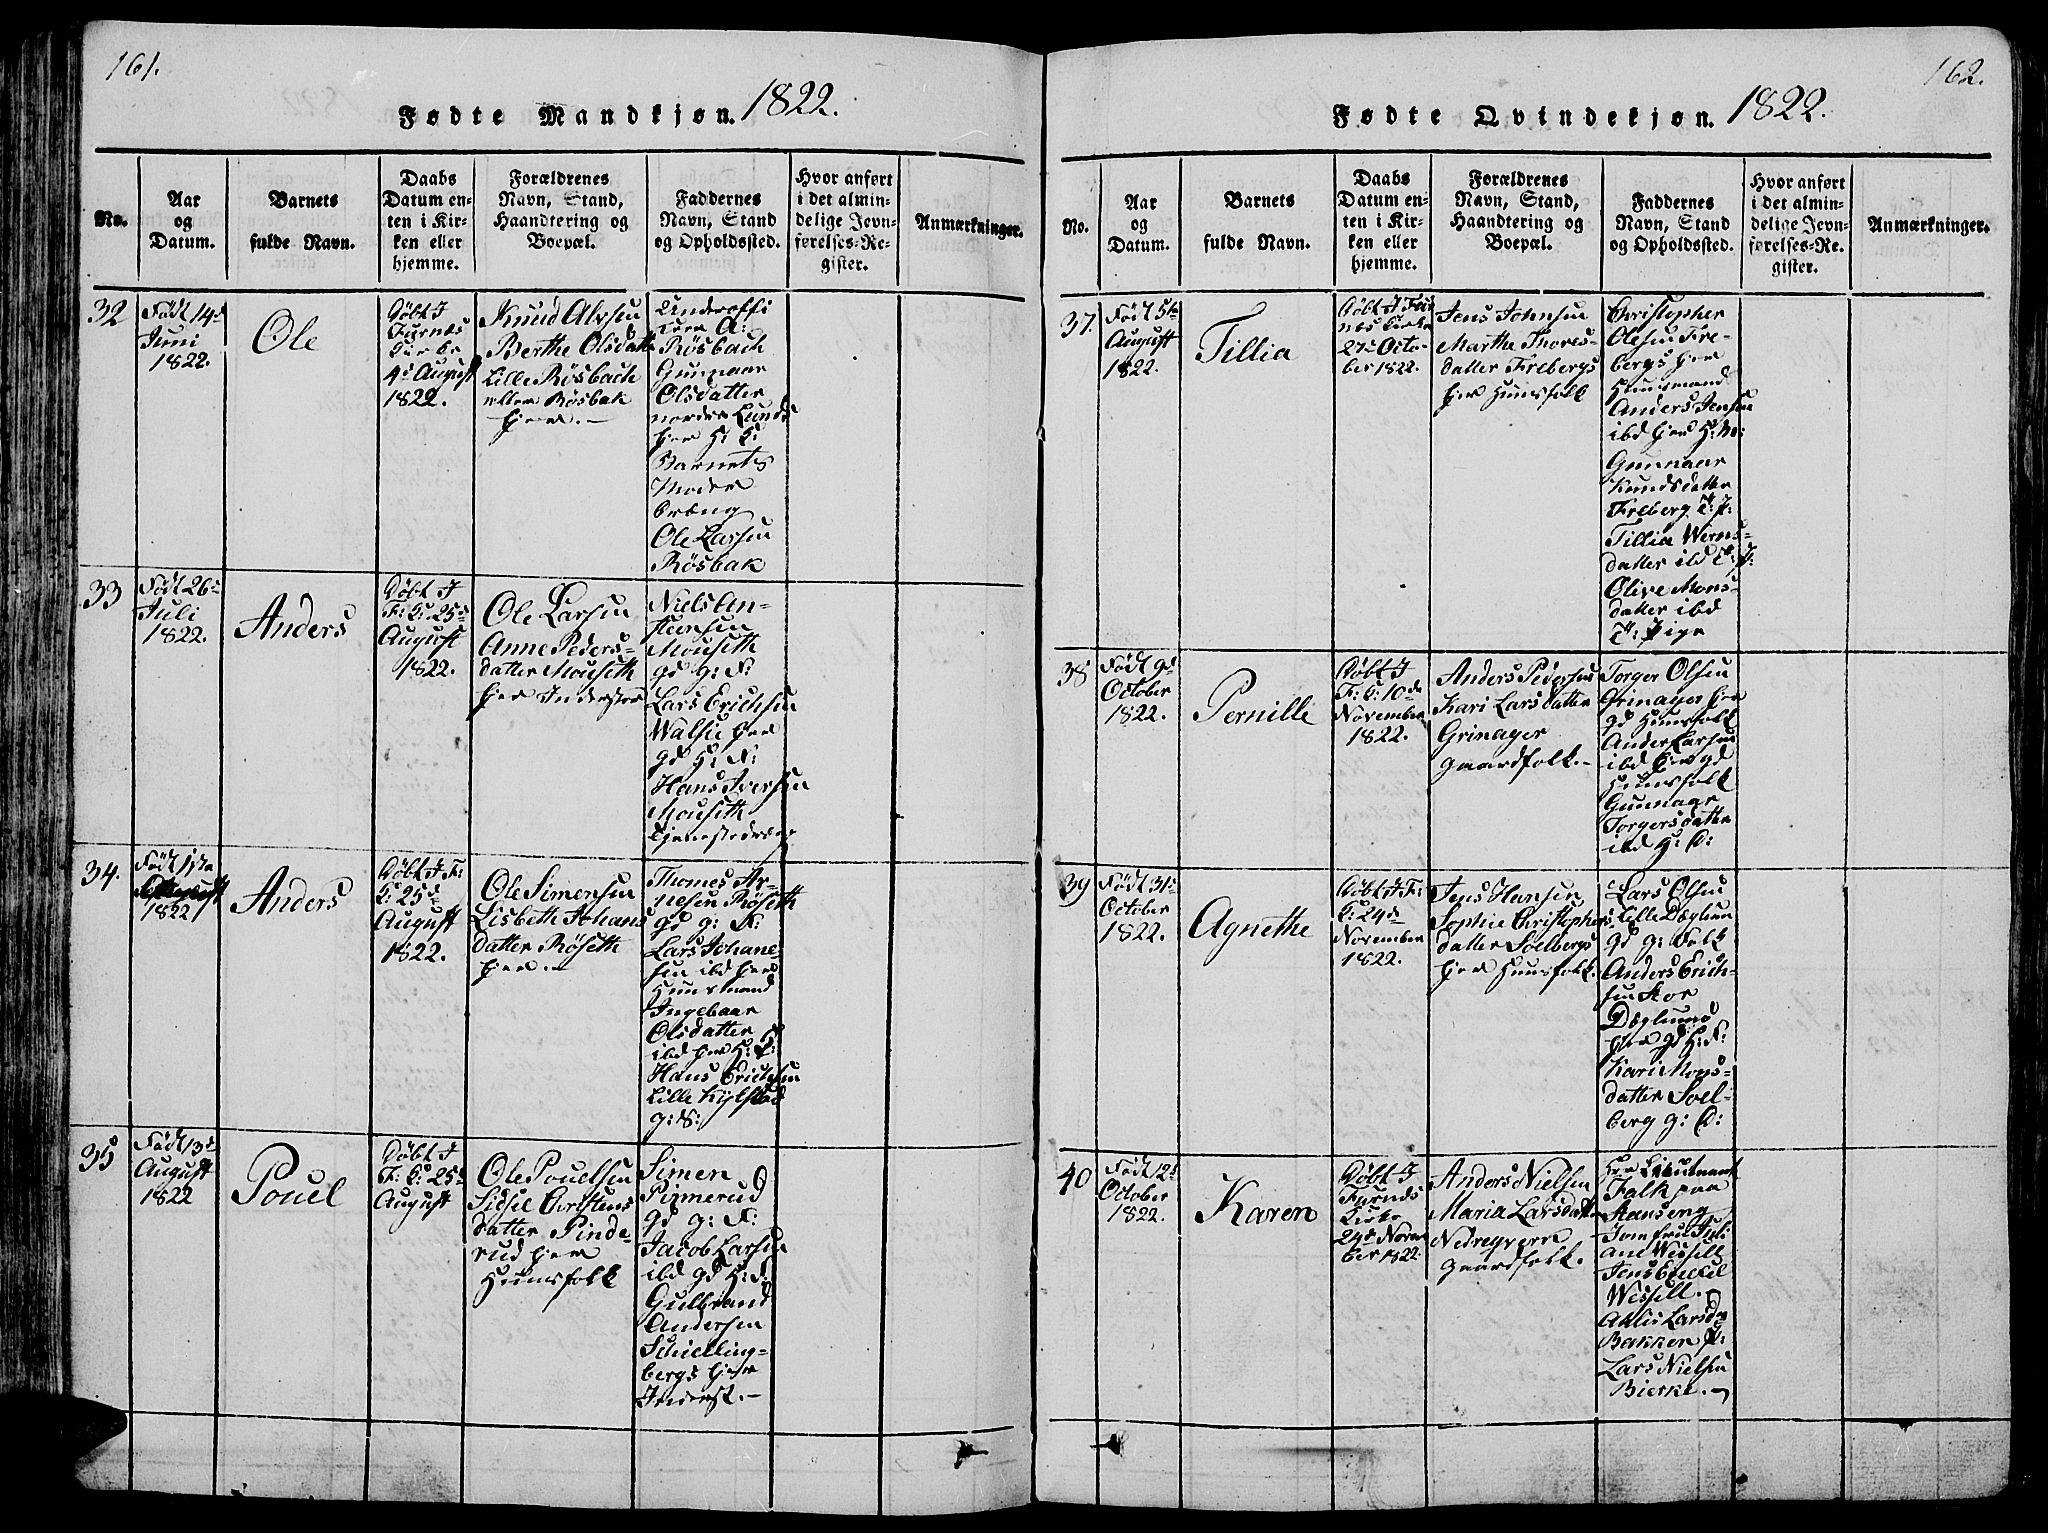 161.
Fødte Mandkjøn. 1822.
No.
Aar
og
Datum.
Barnets
fulde Navn.
Daabs
Datum en-
ten i Kir-
ken eller
hjemme.
Forældrenes
Navn, Stand,
Haandtering og
Boepæl.
Faddernes
Navn, Stand
og Opholdssted.
Hvor anført
i det almin-
delige Jevn-
førelses-Re-
gister.
Anmærkninger.
32
Født 14d
Juni
1822.
Ole
Døbt I
Furnæs
Kirke
4d August
1822.
Knud Alvsen
Berthe Olsdatter
Lille Røsbach
eller Røsbak
hjem.-
Underoffi
A:
Røsbach
Gunnaar
Olsdatter
nordre Lunds
hjem H: K:
Barnets
Moder
Ole Larsen
Røsbak
33
Født 26d
Juli
1822.
Anders
Døbt I
F: K: 25d
August
1822.
Ole Larsen
Anne Peders-
datter Mouseth
hjem Inderster
Niels An-
stensen
Mouseth
gd g: F:
Lars Erichsen
Walsie hjem
gd H: F:
Hans Iversen
Mouseth
Tjenestedreng
34.
Født 1ste
1822
Anders
Døbt I F:
K: 25d
August
1822.
Ole Simensen
Lisbeth Johans
datter Røseth
hjem.-
Thomes Ar-
nesen Røseth
gd g: F:
Lars Johane-
sen ibd hjem
Huusmand
Ingebaar
Olsdatter
ibd hjem H: K:
Hans Erichsen
Lille Kylstad
g: S:
35
Født 13d
August
1822
Pouel
Døbt I
F: K: 25d
August
Ole Pouelsen
Sidsel Christens
datter Pinde-
rud hjem
Huusfolk
Simen
Pinnerud
gd g: F:
Jacob Larsen
ibd gd H: F:
Gulbrand
Andersen
Schielling-
bergs hjem
Inderst.-
162.
Fødte Qvindekjøn. 1822.
No.
Aar
og
Datum.
Barnets
fulde Navn.
Daabs
Datum en-
ten i Kir-
ken eller
hjemme.
Forældrenes
Navn, Stand,
Haandtering og
Boepæl.
Faddernes
Navn, Stand
og Opholdssted.
Hvor anført
i det almin-
delige Jevn-
førelses-Re-
gister.
Anmærkninger.
37.
Født 5te
August
1822.
Tillia
Døbt I Fur
næs Kirke
27d Octo-
ber 1822.
Jens Johnsen
Marthe Thores-
datter Frebergs
hjem Huusfolk
Christopher
Olesen Fre-
bergs hjem
Huusmand
Anders Jensen
ibd hjem H: M:
Gunnaar
Knudsdatter
Freberg T: P:
Tillia Werns-
datter ibd T: P:
Olive Mons-
datter ibd
T: Pige
38
Født 9d
October
1822.
Pernille
Døbt I
F: K: 10de
November
1822.
Anders Pedersen
Kari Larsdatter
Grinager
gaardfolk.-
Torger Olsen
Grinager hjem
gd Huusfolk
Ander Larsen
ibd hjem gd
Huusfolk
Gunnaar
Torgersdatter
ibd H: D:
39
Født 31d
October
1822.
Agnethe
Døbt I F:
K: 24d
November
1822.
Jens Hansen
Sophie Christophers-
datter Soelbergs
hjem Huusfolk.
Lars Olsen
Lille Dæglum
gd g: Folk
Anders Erich-
sen Stor
Dæglums
hjem gd H: F:
Kari Mons-
datter Soel-
berg g: D:
40
Født 12d
October
1822.
Karen
Døbt I
Furnæs
Kirke
24d Novem
ber 1822.
Anders Nielsen
Maria Larsdatter
gaardfolk.
Hr Lieutnant
Falk paa
Stanseng
Jomfru Juli
ane Wessell
Jens
Wessell.
Larsd
Bakken P:
Lars Nielsen
Bierke.